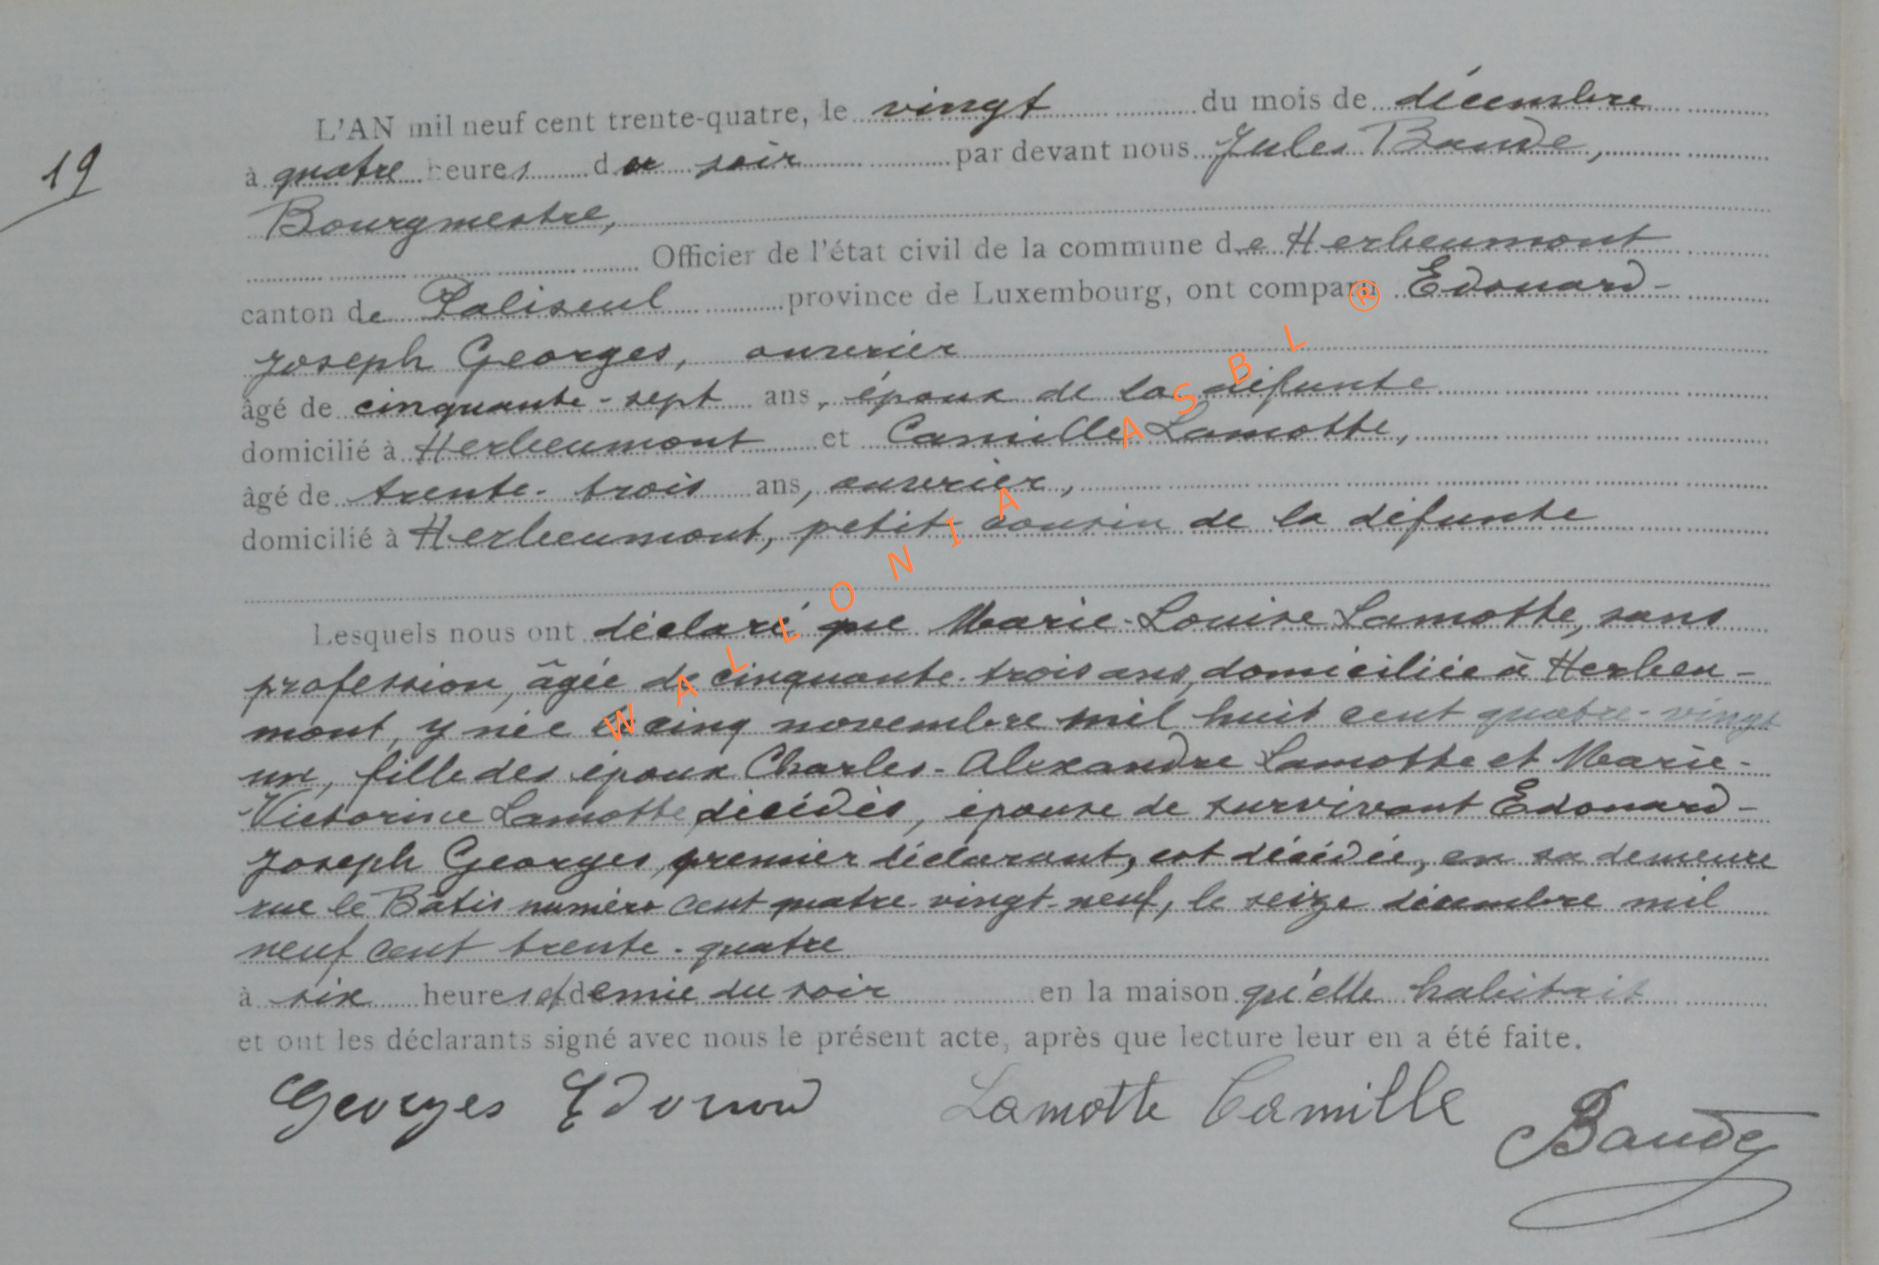 19
L'AN mil neuf cent trente-quatre, le vingt du mois de décembre
à quatre heures du soir par devant nous Jules Baude,
Bourgmestre,
Officier de l'état civil de la commune de Herbeumont
canton de Paliseul province de Luxembourg, ont comparu Edouard-
Joseph Georges, ouvrier
âgé de cinquante-sept ans, époux de la défunte
domicilié à Herbeumont et Camille Lamotte,
âgé de trente-trois ans, ouvrier,
domicilié à Herbeumont, petit cousin de la défunte
Lesquels nous ont déclaré que Marie-Louise Lamotte, sans
profession, âgée de cinquante-trois ans, domiciliée à Herbeu-
mont, y née le cinq novembre mil huit cent quatre-vingt
un, fille des époux Charles-Alexandre Lamotte et Marie-
Victorine Lamotte décédés, épouse de survivant Edouard-
Joseph Georges, premier déclarant, est décédée, en sa demeure
rue le Bâtis numéro cent quatre-vingt-neuf, le seize décembre mil
neuf cent trente-quatre
à six heures et demie du soir en la maison qu'elle habitait
et ont les déclarants signé avec nous le présent acte, après que lecture leur en a été faite.
Georges Edouard Lamotte Camille Baude
WALLONIA ASBL ®